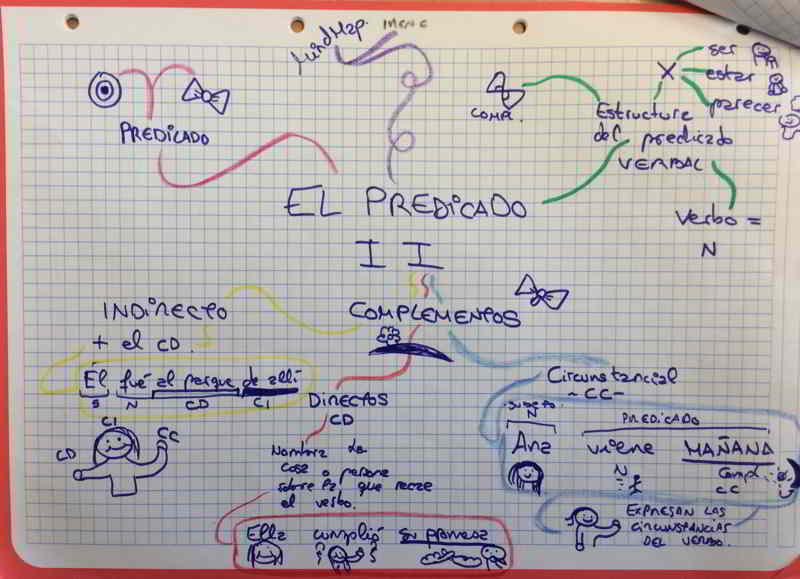 MindMap. MENE
ser
estar
parecer
X
COMP.
Estructura
del predicado
VERBAL
PREDICADO
EL PREDICADO
II
verbo =
N
INDIRECTO
+ el CD.
COMPLEMENTOS
Él fué al parque de allí
S N CD CI
DIRECTOS
CD
Circunstancial
- CC -
CI
CD
CC
Nombra la
cosa o persona
sobre la que recae
el verbo.
sujeto
N
PREDICADO
Ana viene MAÑANA
N
Compl
CC
Ella cumplió su promesa
EXPRESAN LAS
CIRCUNSTANCIAS
DEL VERBO.